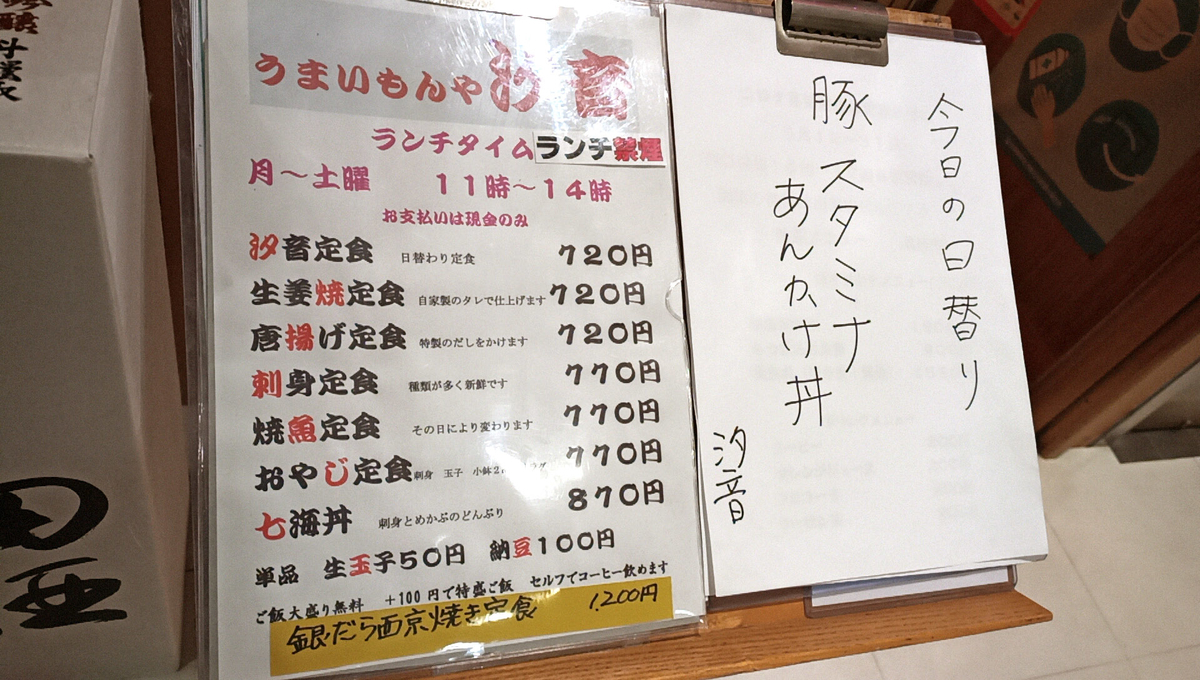 うまいもんや汐音
ランチタイム ランチ禁煙
月～土曜 11時～14時
お支払いは現金のみ
汐音定食 日替わり定食 720円
生姜焼定食 自家製のタレで仕上げます 720円
唐揚げ定食 特製のだしをかけます 720円
刺身定食 種類が多く新鮮です 770円
焼魚定食 その日により変わります 770円
おやじ定食 刺身 玉子 小鉢2 770円
七海丼 刺身とめかぶのどんぶり 870円
単品 生玉子50円 納豆100円
ご飯大盛り無料 +100円で特盛ご飯 セルフでコーヒー飲めます
銀だら西京焼き定食 1,200円
今日の日替り
豚スタミナ
あんかけ丼
汐音